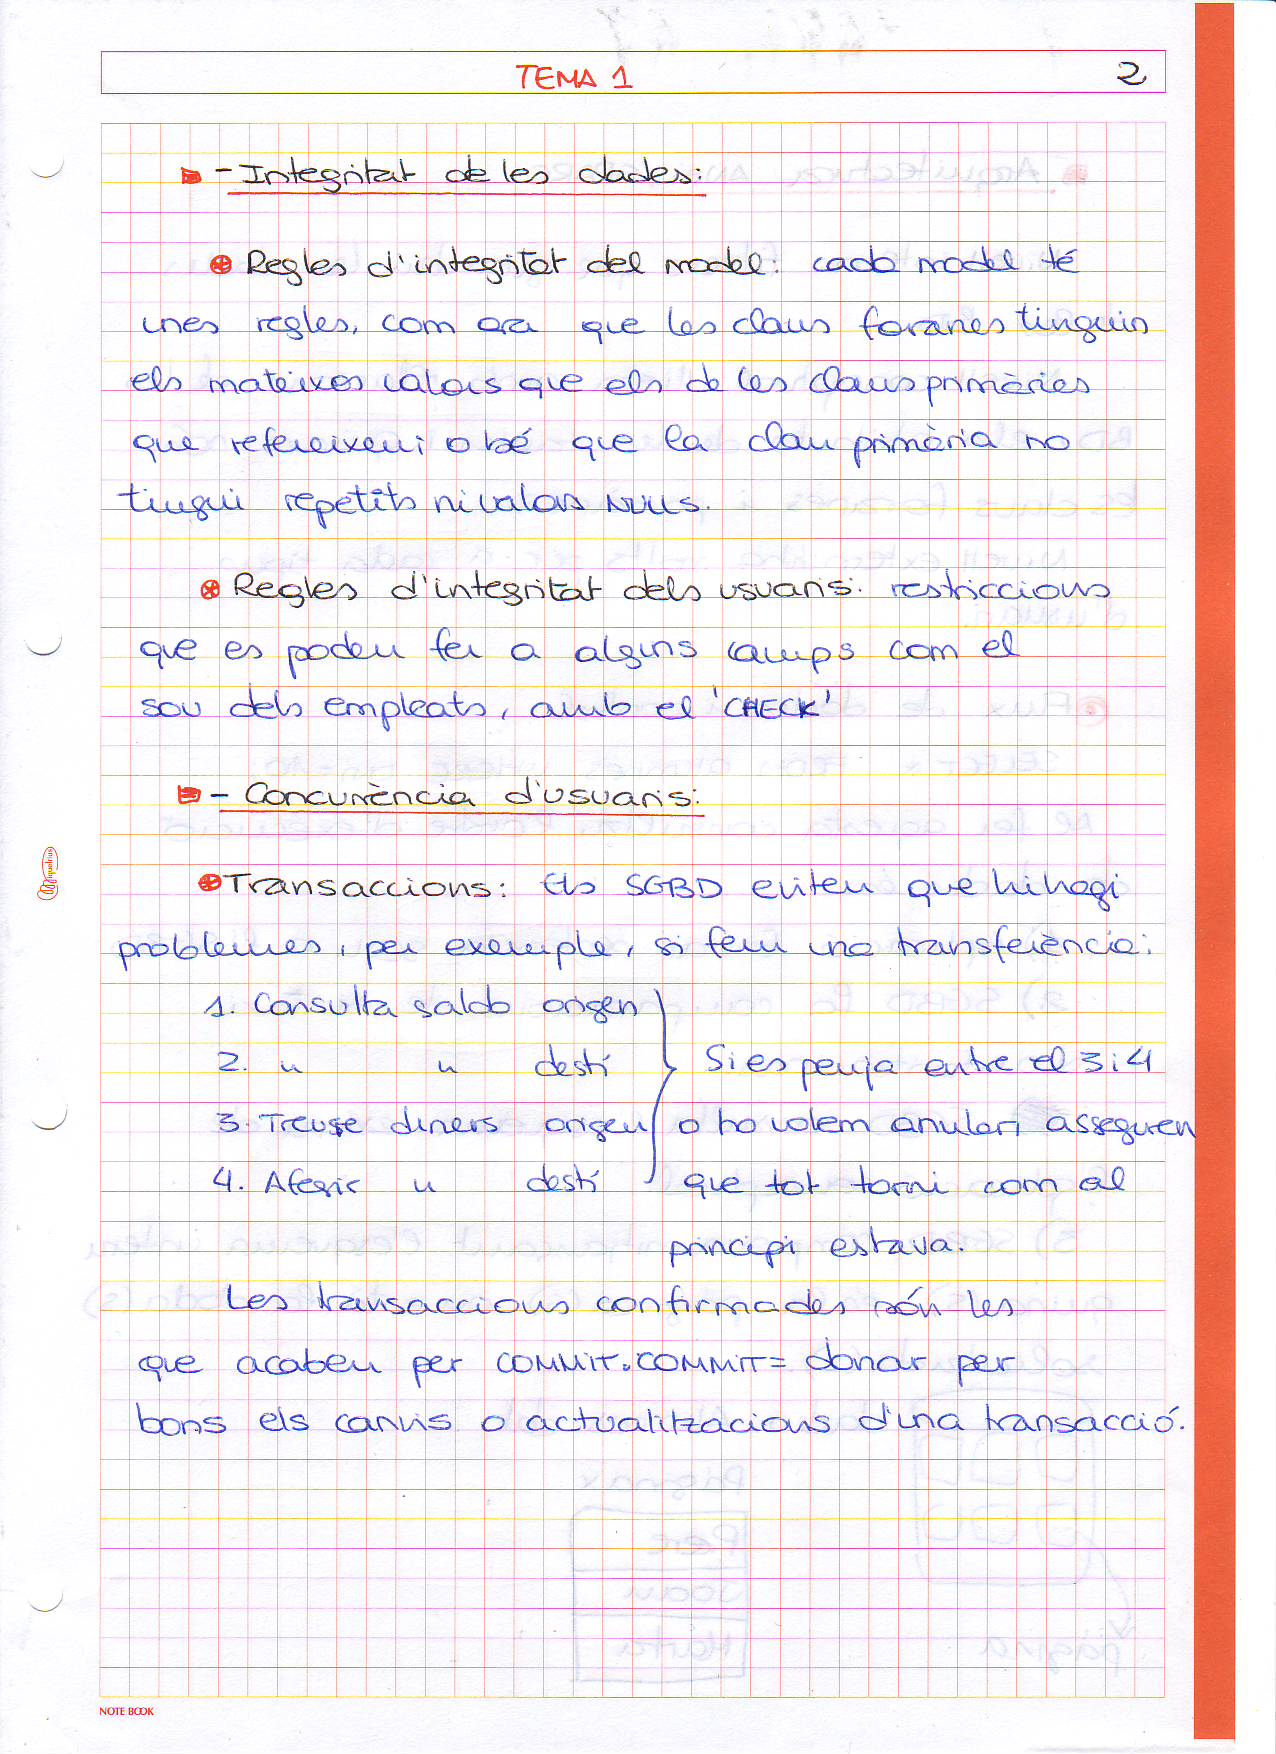 TEMA 1 2
- Integritat de les dades:
Regles d'integritat del model: cada model té
unes regles, com ara que les claus foranes tinguin
els mateixos valors que els de les claus primàries
que refereixen; o bé que la clau primària no
tingui repetits ni valors NULLS.
Regles d'integritat dels usuaris: restriccions
que es poden fer a algins camps com el
sou dels empleats, amb el 'CHECK'
- Concurrència d'usuaris:
Transaccions: Els SGBD eviten que hi hagi
problemes, per exemple, si fem una transferència:
1. Consulta saldo origen
2. " " destí Si es penja entre el 3 i 4
3. Treuse diners origen o ho volem anular, asseguren
4. Afegir " destí que tot torni com al
principi estava.
Les transaccions confirmades són les
que acaben per COMMIT. COMMIT = donar per
bons els canvis o actualitzacions d'una transacció.
miquelrius
NOTE BOOK